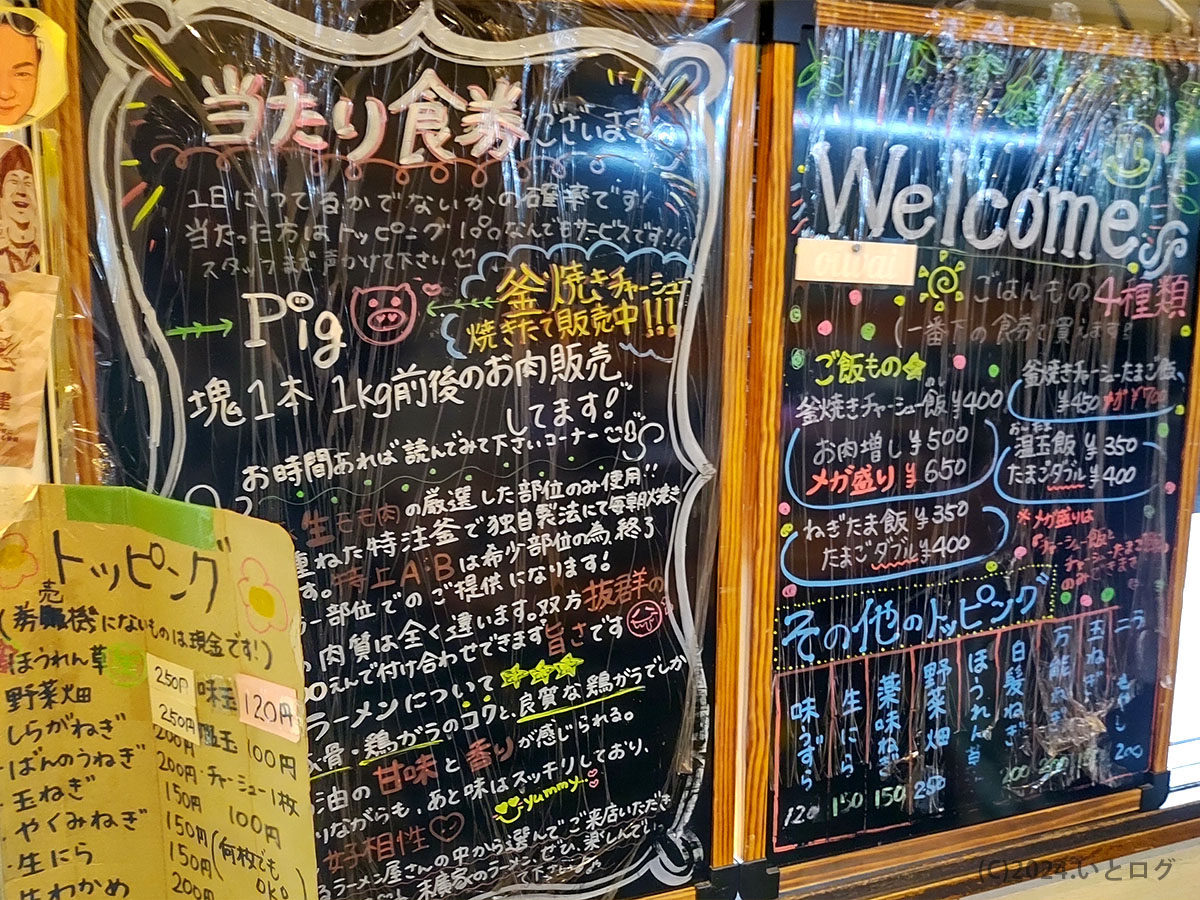 当たり食券ございます
1日に1つでるかでないかの確率です!
当たった方はトッピング1つなんでもサービスです!!!
スタッフまで声かけて下さい
Pig
釜焼きチャーシュー
焼きたて販売中!!!
塊1本 1kg前後のお肉販売
してます!
お時間あれば読んでみて下さいコーナー
生モモ肉の厳選した部位のみ使用!!
重ねた特注釜で独自製法にて毎朝焼き
す。特上A・Bは希少部位の為、終了
部位でのご提供になります!
肉質は全く違います。双方抜群の
えんで付け合わせできます 旨さです
ラーメンについて
骨・鶏がらのコクと、良質な鶏ガラでしか
油の甘味と香りが感じられる。
りながらも、あと味はスッキリしており、
好相性♡
yummy...
ラーメン屋さんの中から選んでご来店いただき
末廣家のラーメン、ぜひ、楽しんで
トッピング
(券売機にないものは現金です!)
ほうれん草 250円
野菜畑 250円
しらがねぎ 200円
ばんのうねぎ 200円
・玉ねぎ 150円
・やくみねぎ 150円
・生にら 150円
生わかめ 200円
味玉 120円
温玉 100円
・チャーシュー1枚
100円
(何枚でも
OK。)
Welcome
ouvai
ごはんもの4種類
(一番下の食券で買えます!
ご飯もの★
釜焼きチャーシュー飯¥400
お肉増し¥500
メガ盛り¥650
ねぎたま飯¥350
たまごダブル¥400
釜焼きチャーシューたまご飯、
¥450 メガ¥700
温玉飯¥350
たまごダブル¥400
※メガ盛りは
チャーシュー飯と
のみできます
その他のトッピング
味うずら 120
生にら 150
薬味ねぎ 150
野菜畑 250
ほうれん草
白髪ねぎ 200
万能ねぎ 200
玉ねぎ
もやし 200
(C)2024.いとログ